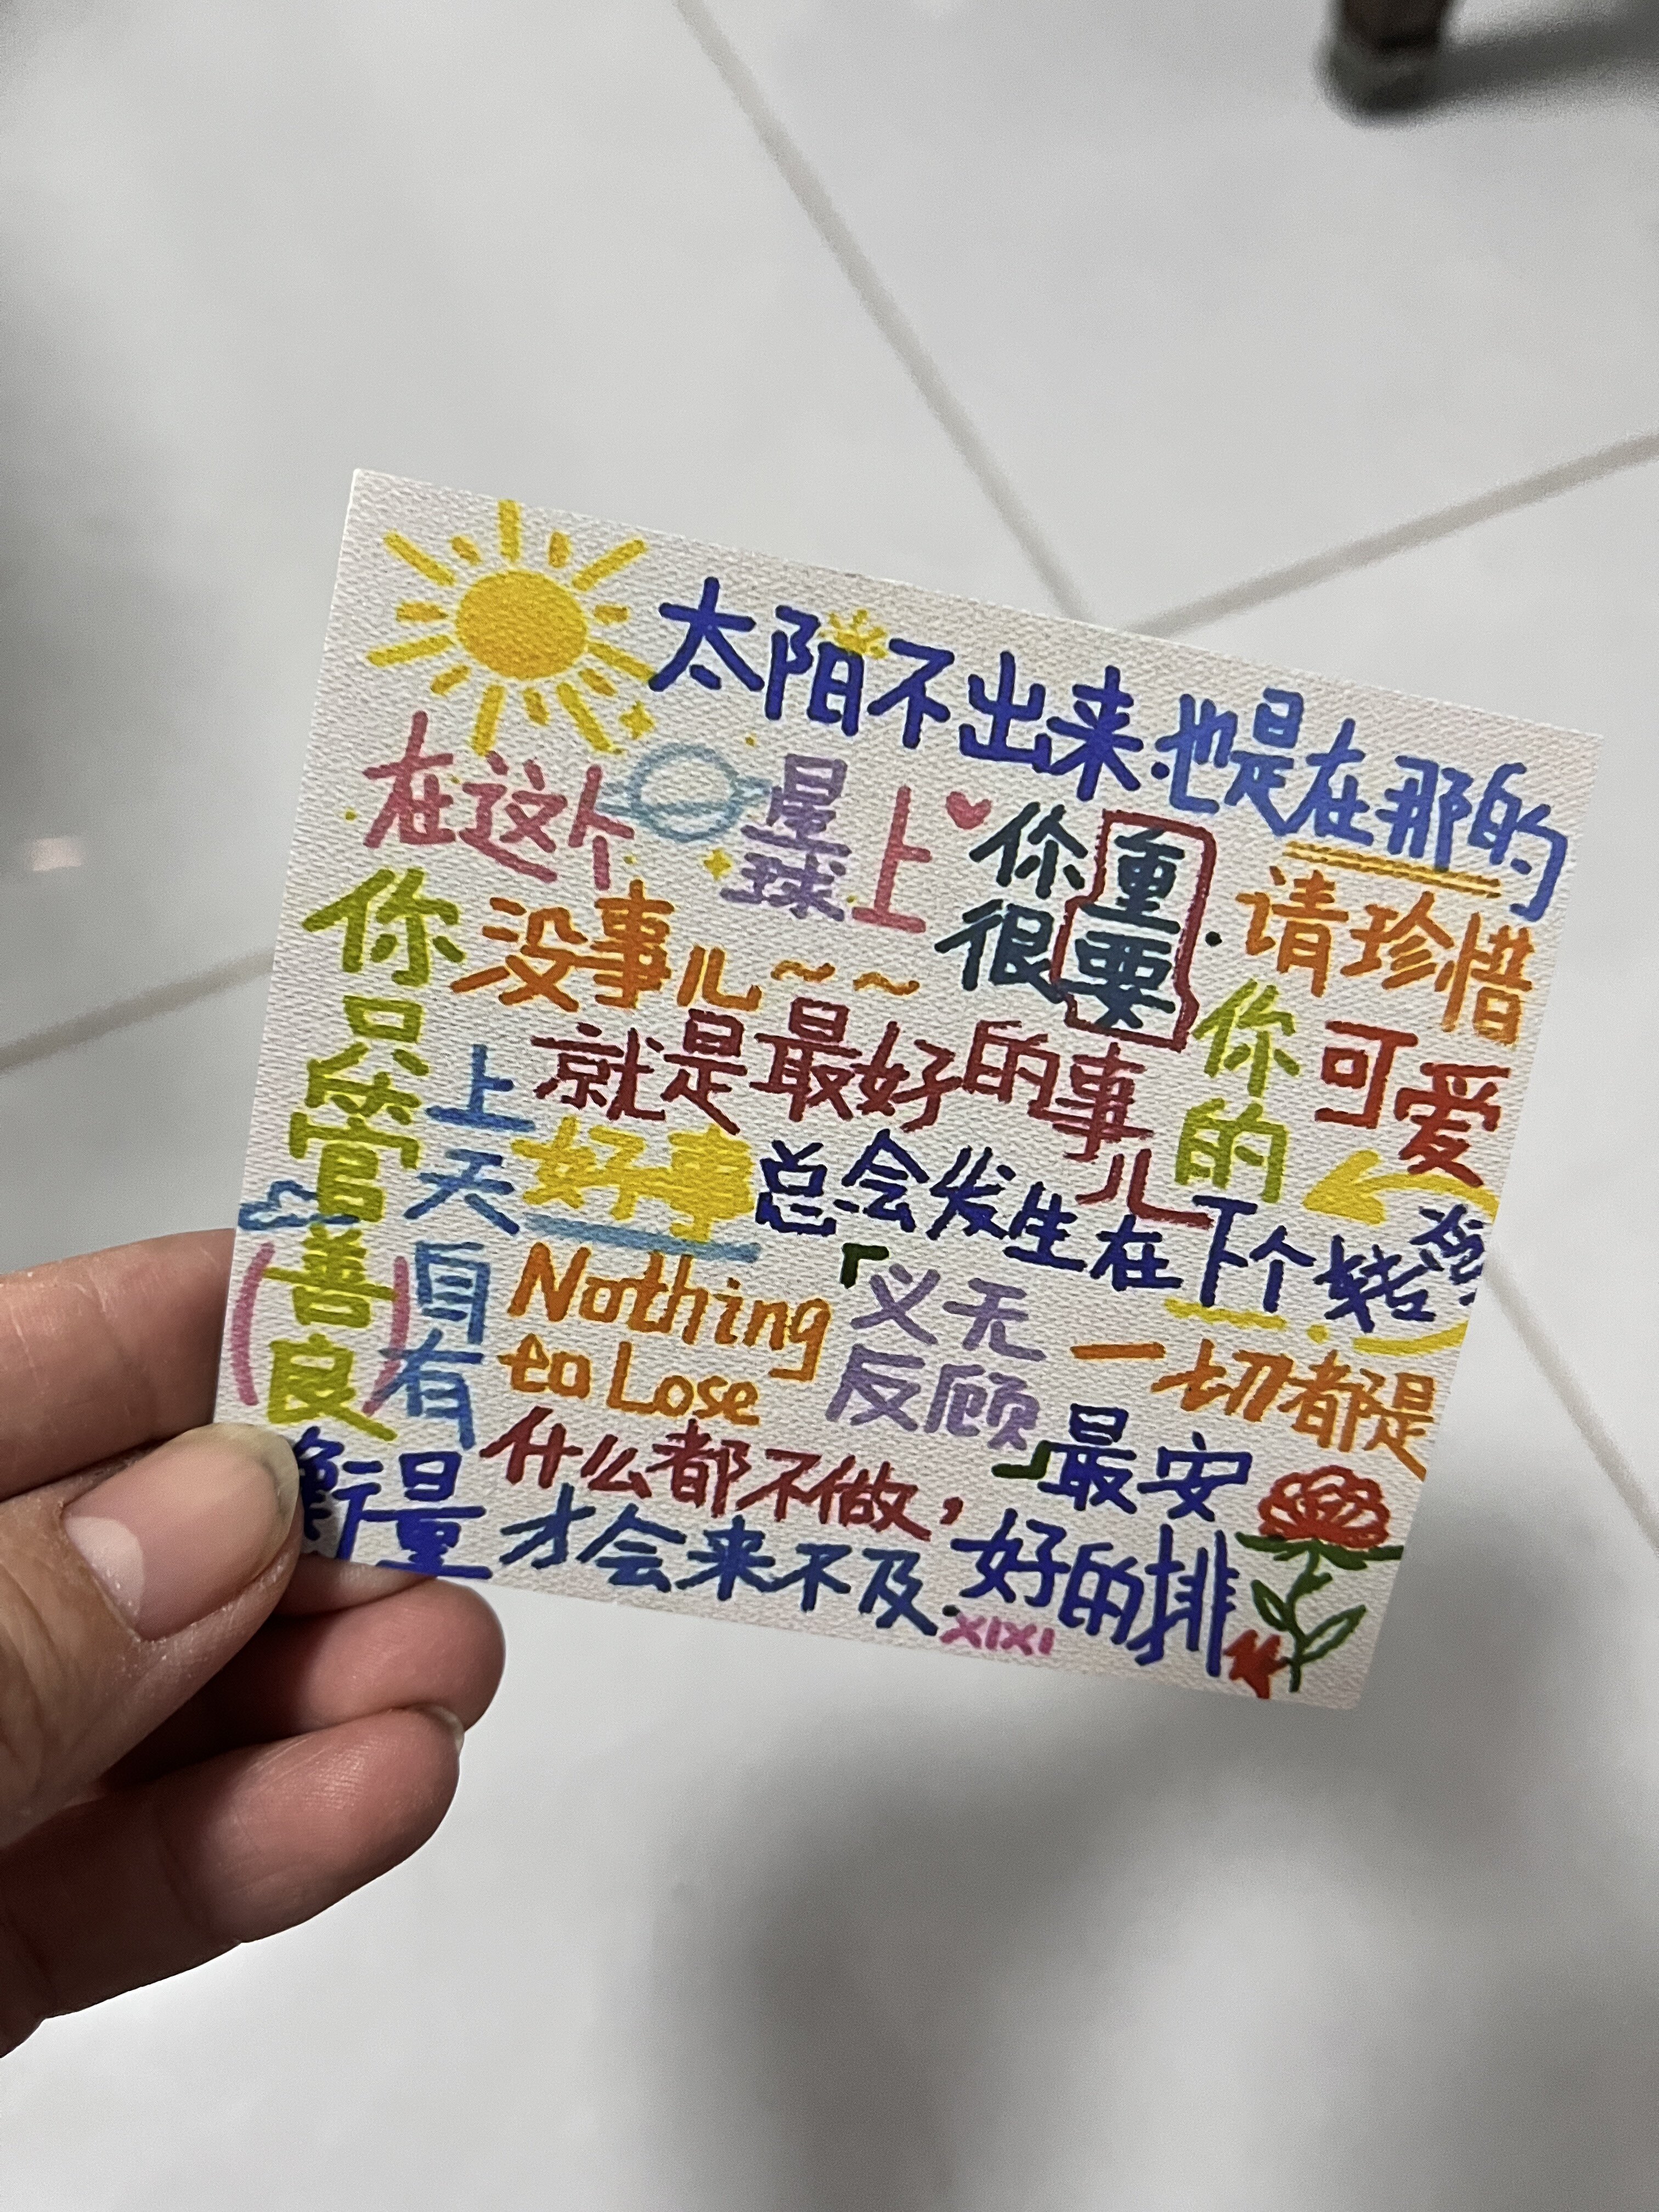 太阳不出来也是在那的
在这个星球上
你很重要
请珍惜你的可爱
没事儿~~
就是最好的事儿
你只管善良
上天自有衡量
好事总会发生在下个转弯
Nothing
to Lose
「义无
反顾」
一切都是
最安
好的排
什么都不做,
才会来不及
XIXI